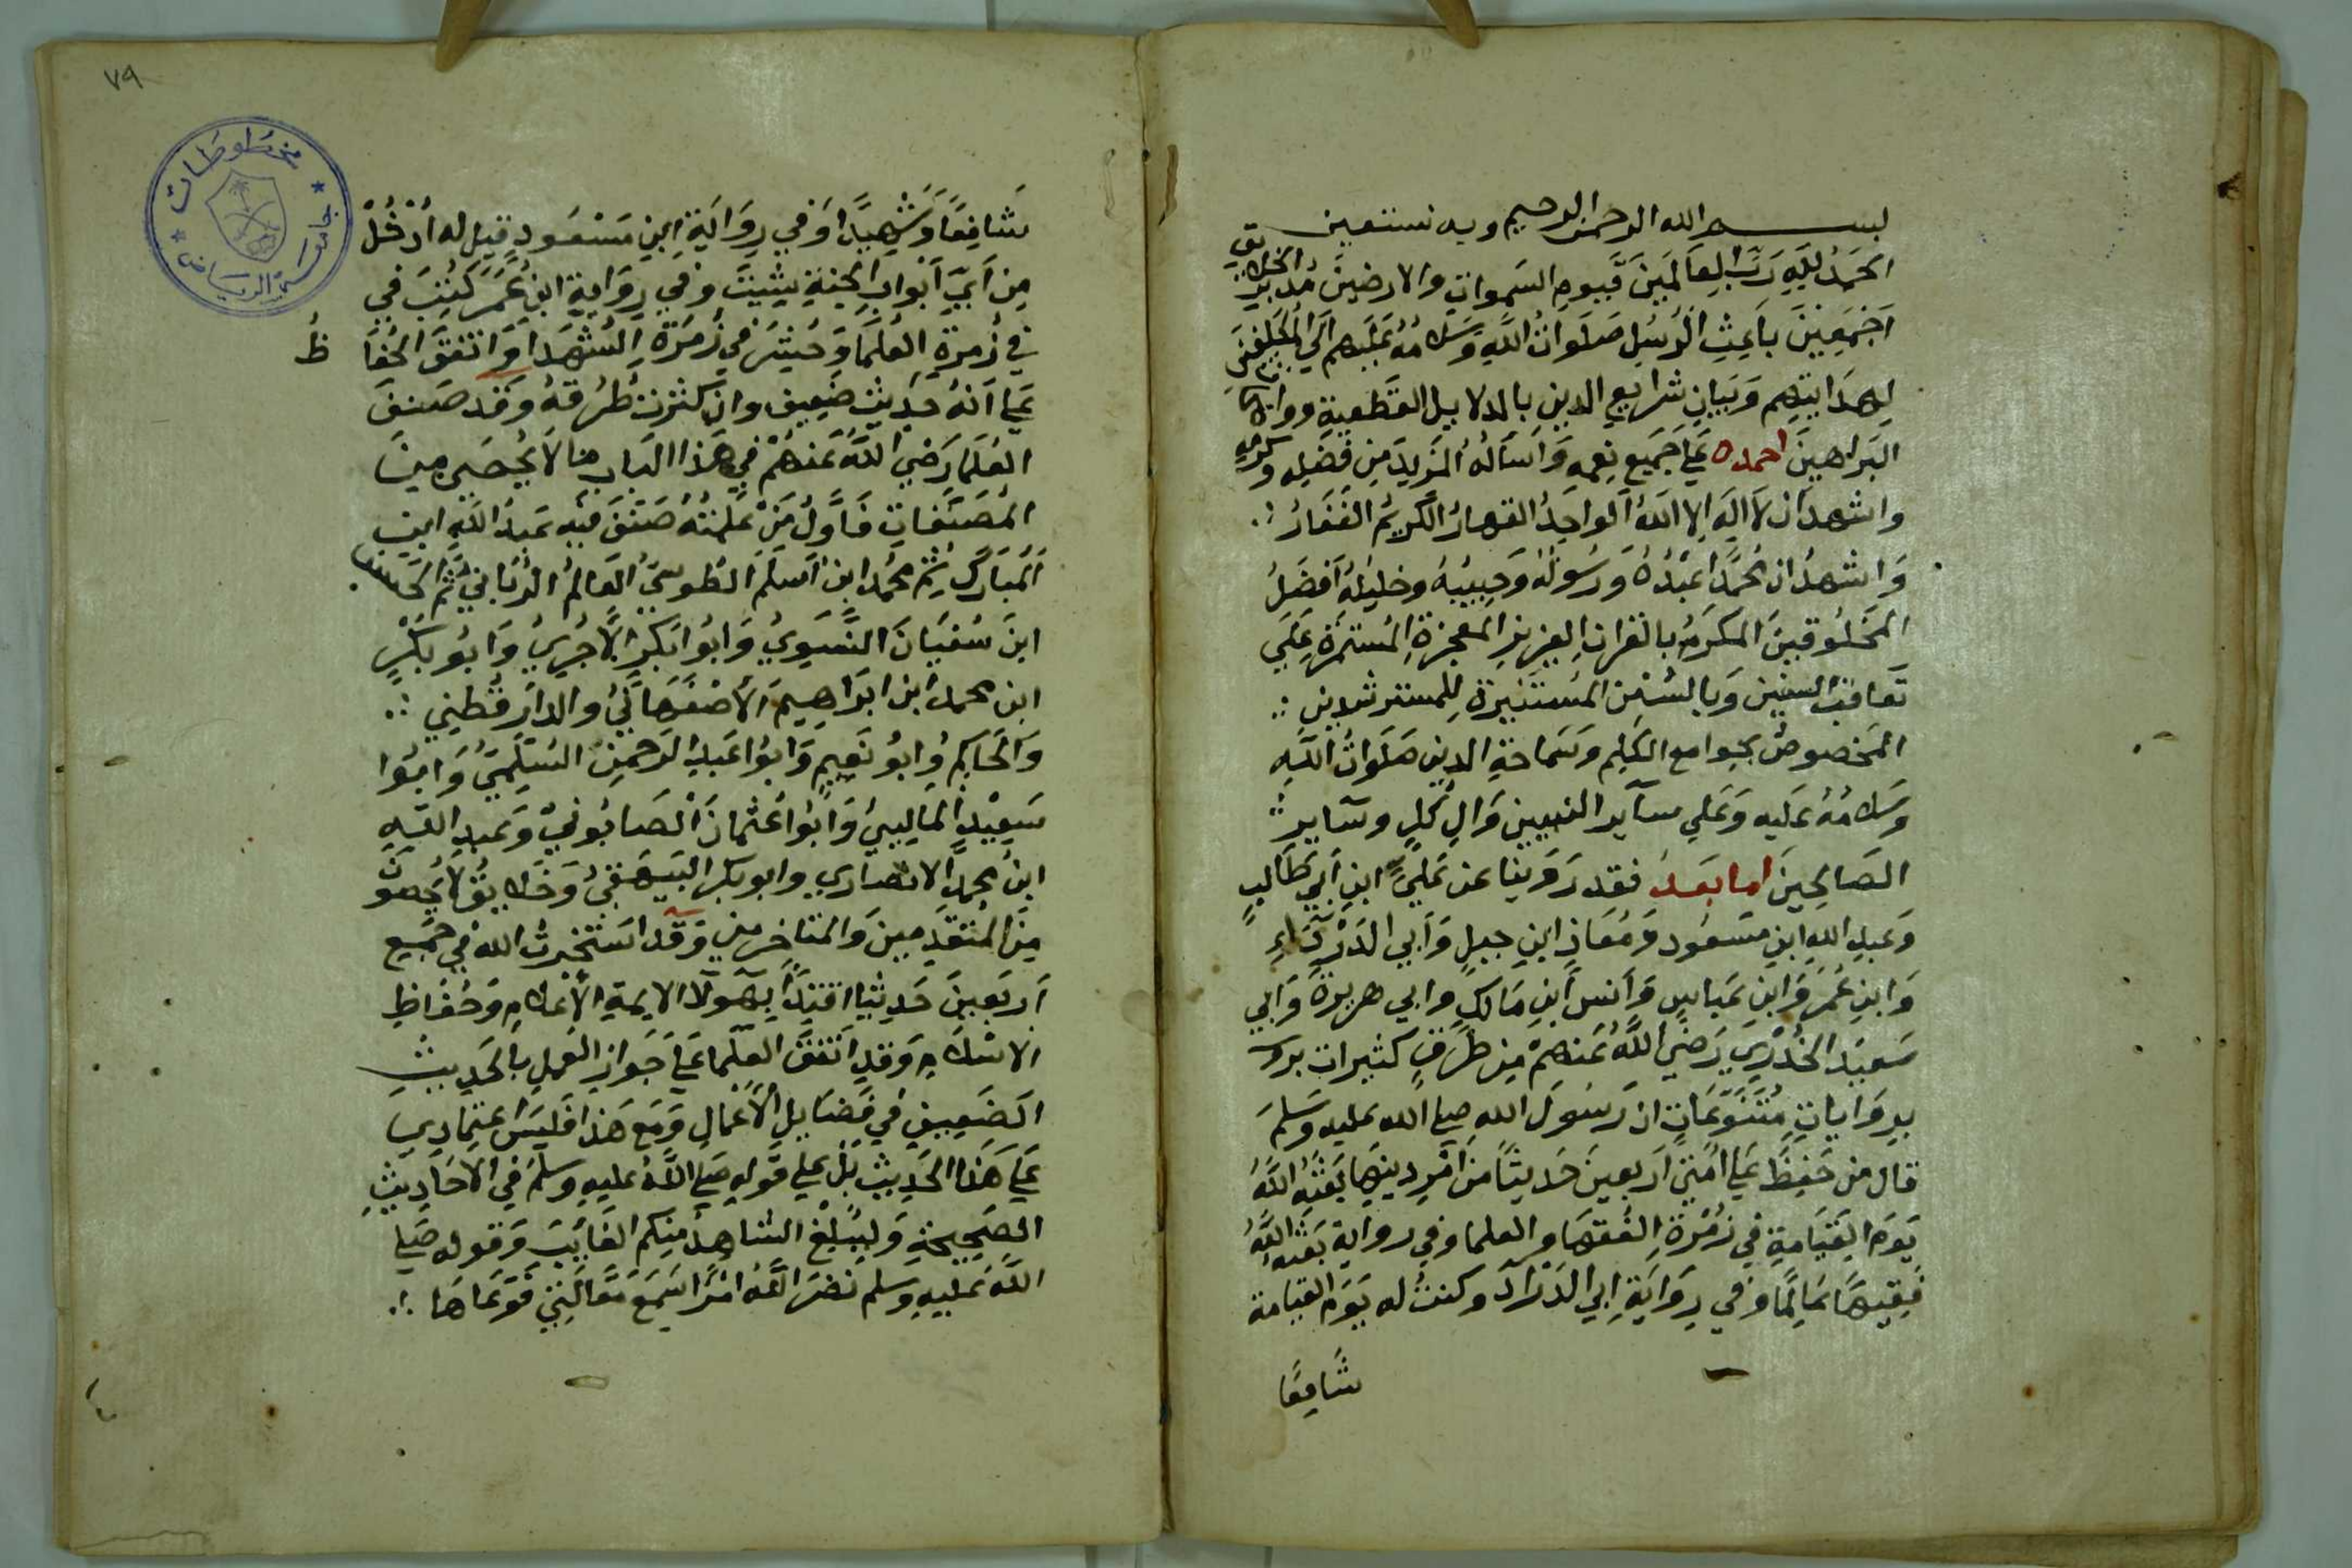 بسم الله الرحمن الرحيم وبه نستعين
الحَمدُ لِلَّهِ رَبِّ العَالَمينَ قَيومِ السَموات والارضينَ مُدبر الخلايق
اجمَعِينَ باعِثِ الرُسُلِ صَلَواتُ اللَّهِ وَسَلامُهُ عَلَيهم الَي المُكَلفينَ
لِهدَايتِهِم وَبَيانِ شرايعِ الدينِ بالدلايل القَطعيةِ وواضحات
البَراهينَ احمده عَلَي جَميعِ نِعمِه وَاسَألهُ المزيدَ مِن فَضلِه وكرَمِهِ
واشهدُ ان لا الهَ الا اللهُ الواحِدُ القهارُ الكَريمُ الغَفارُ
وَاشهدُ ان مُحمَّداً عَبْدُهُ وَرَسُولهُ وَحبيبُهُ وخليلُهُ اَفضَلُ
المخَلُوقينَ المكرَمُ بالقرانِ العِزيزِ المعجزةِ المُستمَرةِ عَلَي
تَعاقبِ السنين وَبالسُنن المُستَنيرةِ لِلمسترشدين
المَخصوصُ بجَوامع الكَلِم وسَماحةِ الدين صَلَواتُ اللهِ
وسَلامُهُ عَليهِ وَعَلي سآير النبيين وَالِ كُلٍ وسَآيرِ
الصَالحِينَ اما بَعدُ فقد رَوَينا عن عَليِّ ابنِ اَبي طَالبٍ
وَعَبدِ اللهِ ابنِ مسَعُود وَمُعَاذِ ابنِ جبلٍ وَاَبي الدَرْدَآءِ
وَابنِ عُمَرَ وَابنِ عَباسٍ وَاَنسِ اَبنِ مَالكٍ وابي هريرةَ وَابي
سَعيدَ الخُدْرِيَ رَضيَ اللَّهُ عَنهمْ مِن طَرَقٍ كثيرات
بروَاياتٍ مُتَنَوّعَاتٍ ان رَسُولَ الله صلي الله عليه وَسَلمَ
قال من حَفِظَ عَلي اُمتي اَربعينَ حَديثًا من اَمرِ دينِهَا بَعثَهُ اللَّهُ
يَومَ القِيَامةِ في زُمرَةِ الفُقهَا والعلما وفي روايةٍ بَعَثهُ اللَّهُ
فَقِيهًا عَالِمًا وَفي رِوَايَةِ ابي الدَرْدآ وكنتُ له يَومَ القيامة
شَافِعًا
٧٩
شَافِعًا وَشَهِيدًا وَفي رِوَايَةِ ابنِ مَسْعُودٍ قيل له اُدْخُلْ
مِن اَيِّ اَبْوابِ الجنةِ شِئيتَ وَفي رِوَايةِ ابنِ عُمَرَ كُتِبَ في
في زُمرةِ العُلمَا وَحُشِرَ في زُمَرةِ الشُهَدَا وَاتفقَ الحُفا
ظُ
عَلي اَنهُ حَديثٌ ضَعِيف وان كثرتْ طُرُقهُ وَقَد صَنفَ
العُلَمَا رَضيَ اللَّهُ عَنهمْ في هَذا البَابِ مَا لَا يُحصَي مِنَ
المُصَنَفاتِ فَاَوَّلُ مَنْ عَلِمتُهُ صَنفَ فيهِ عَبدُ اللهِ ابن
اَلمُبَاركِ ثم محمدُ ابن اَسلَمَ الطُوسيُّ العَالمُ الرَبَانيُّ ثم الحَسَن
ابنَ سُفيَانَ النَّسَويُ وَابُو ابَكرٍ الاَجُريُ وَابُو بَكْرٍ
ابن محمد ابن ابَراهِيمَ الاَصْفَهَانيُ والدارَ قُطني
وَالحَاكِمُ وابُو نَعِيمٍ وَابوُا عَبدِ الرَحمنِ السُلَميُّ وَابُوا
سَعِيْدٍ المالِينيُ وَابُوا عُثمانَ الصَابُونيُ وَعبدِ اللهِ
ابنُ محمدٍ الانصَاري وابوبكر البَيهَقيُ وَخَلايقٌ لا يُحصَونَ
مِنَ المُتقدمِينَ وَالمتاخرين وَقَد استَخرتُ اللهَ في جمع
اَربَعينَ حَديثا اقتداً بهَولاَ الايمةِ الاَعلام وَحُفاظِ
الاسلام وَقدِ اتَفقَ العلَما عَلي جَوازِ العَملِ بالحَديثِ
الضَعِيفِ في فَضَايلِ الاَعْمالِ وَمَعَ هَذا فَليسَ اعتِمادِي
عَلَي هَذا الحَدِيثِ بَلْ علي قَولِهِ صَلي اللَّهُ عليهِ وسلمَ في الاحَاديثِ
الصَحيحَةِ وَليُبَلغ الشاهدُ مِنكم الغَايبَ وَقوله صَلي
اللهُ عَليهِ وسلم نضرَ اللَّهُ امرًا سَمِعَ مَقَالتي فَوَعَاهَا
مخطوطات
جامعة الرياض